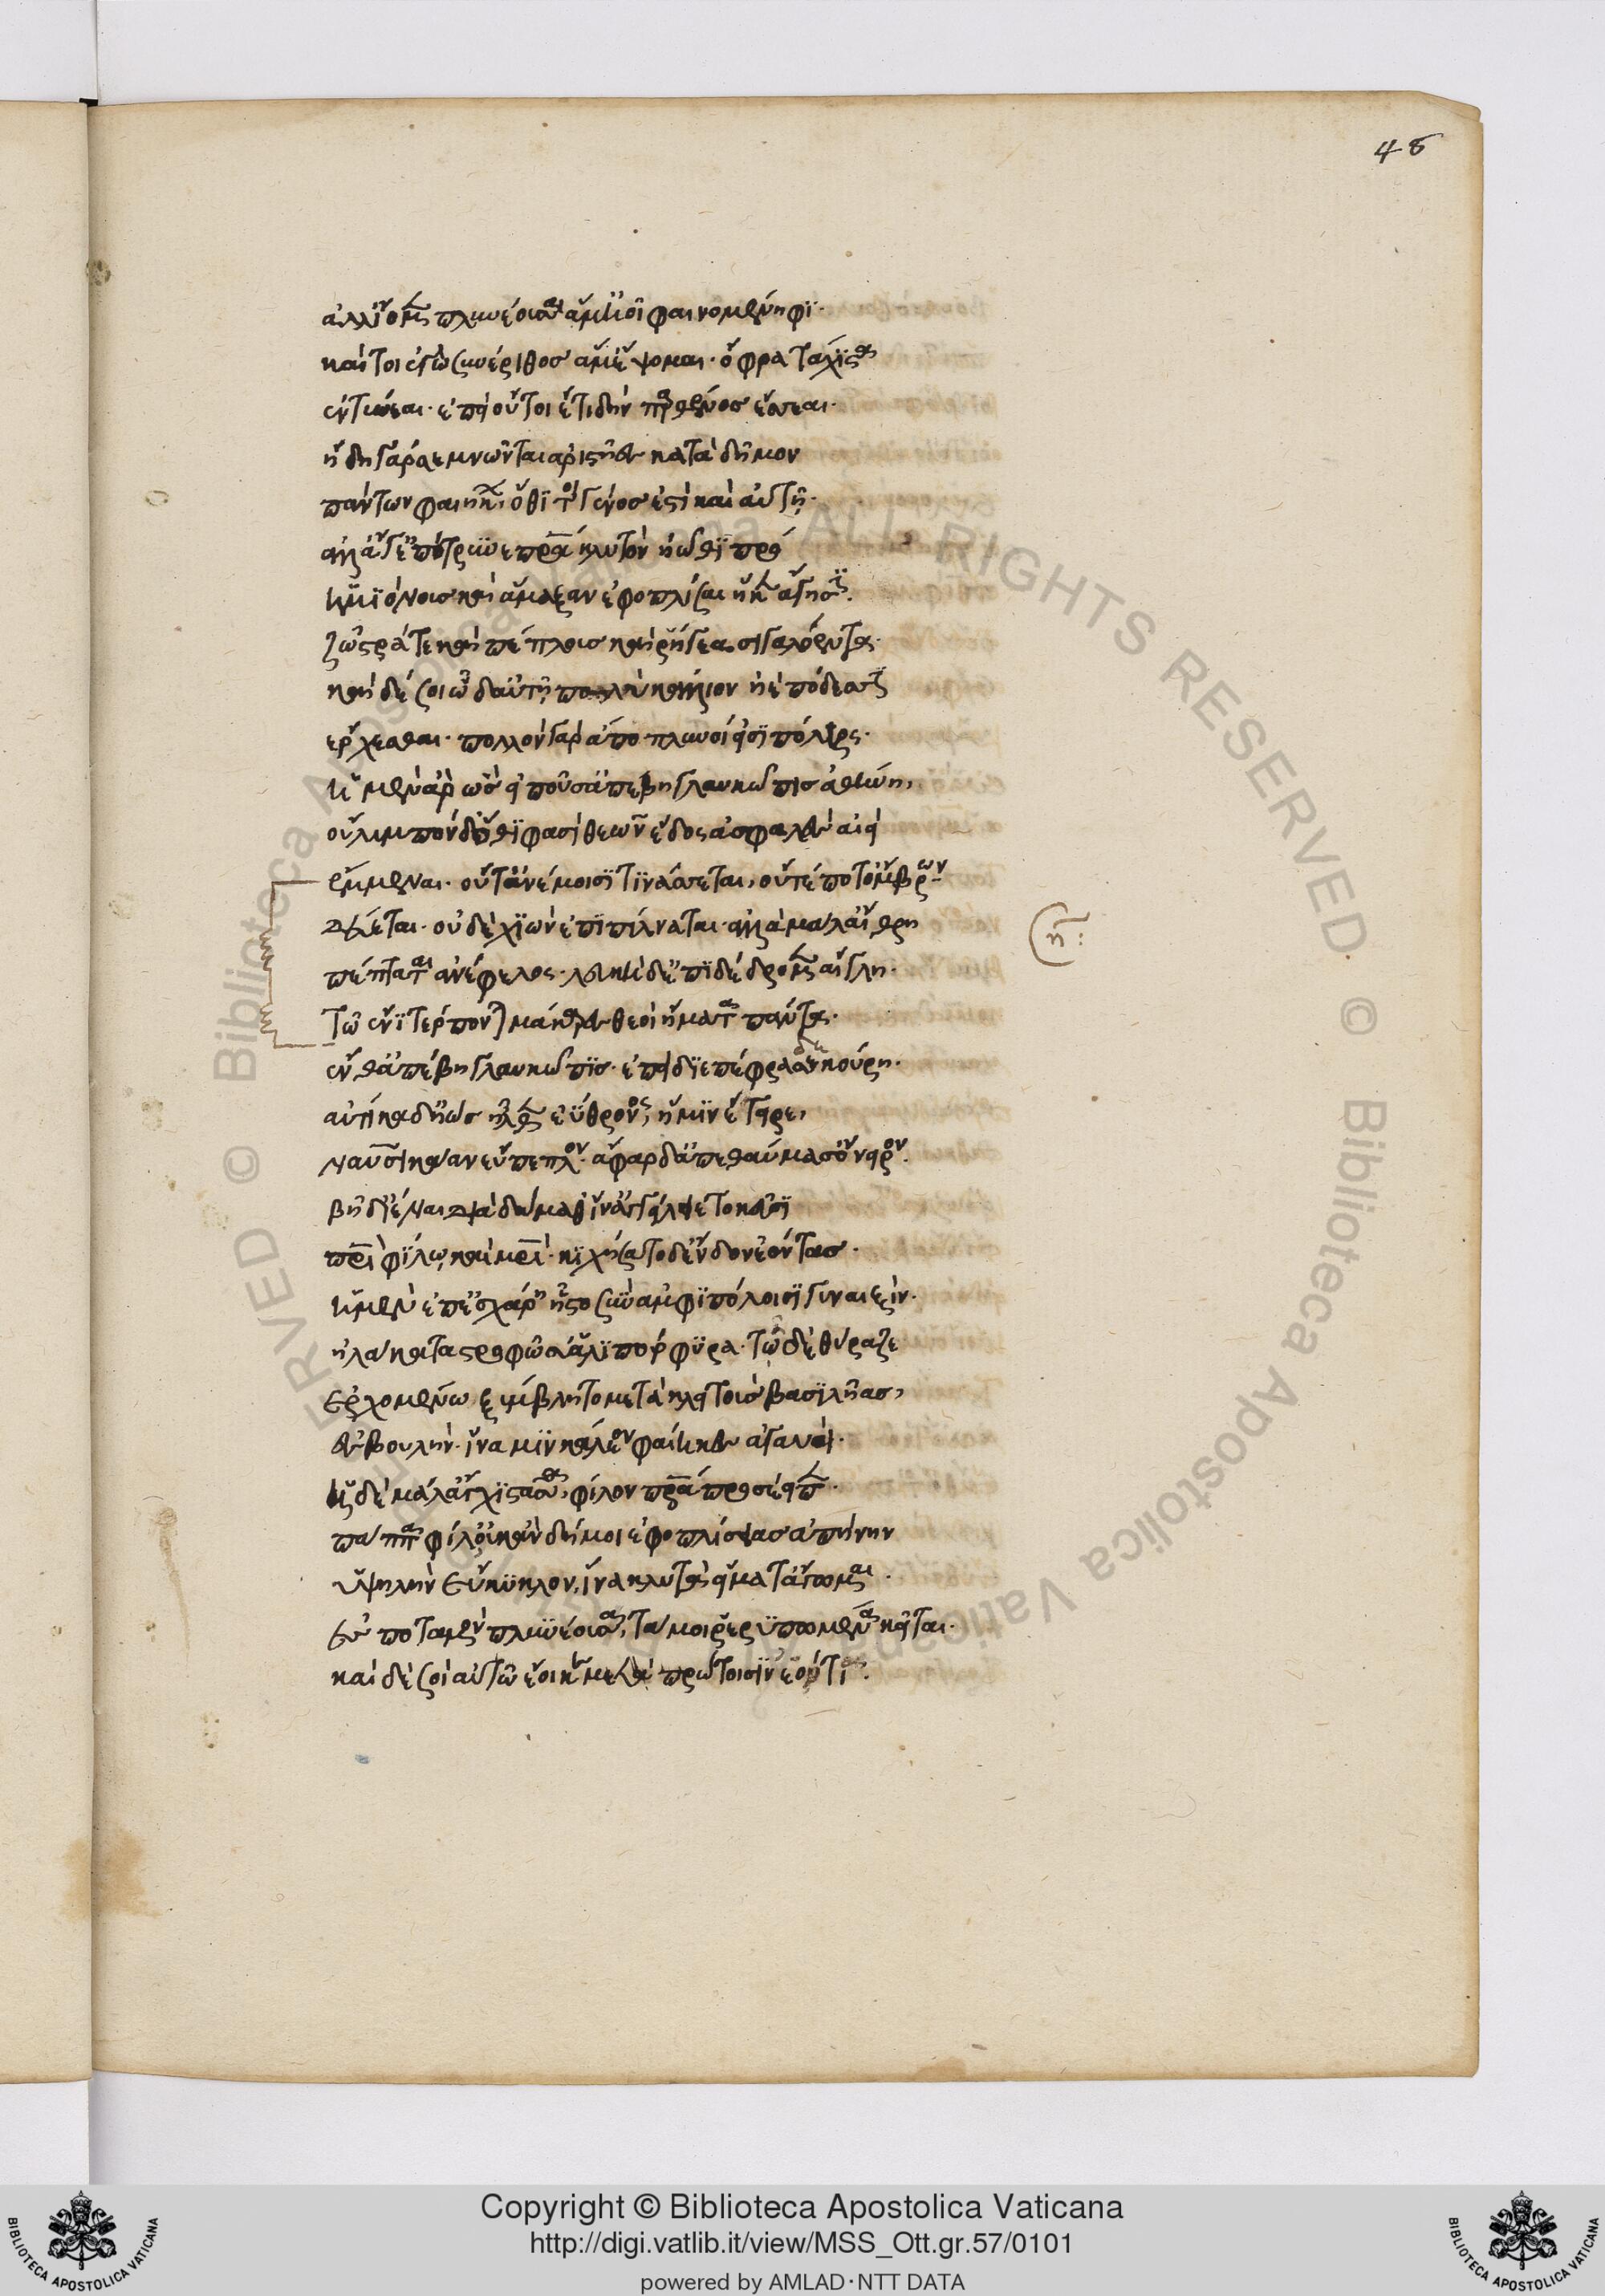 48
ἀλλ' ἴομεν πλυνέουσαι ἅμ' ἠοῖ φαινομένηφι·
καί τοι ἐγὼ συνέριθος ἅμ' ἕψομαι· ὄφρα τάχιστα
ἐντύνεαι· ἐπεὶ οὔτοι ἔτι δὴν παρθένος ἔσσεαι·
ἤδη γάρ σε μνῶνται ἀριστῆες κατὰ δῆμον
πάντων φαιήκων ὅθι τοι γένος ἐστὶ καὶ αὐτῆ·
ἀλλ' ἄγ' ἐπότρυνε πατέρα κλυτὸν ἠῶθι πρὸ
ἡμιόνους καὶ ἄμαξαν ἐφοπλίσαι ἥ κεν ἄγησι·
ζῶστρά τε καὶ πέπλους καὶ ῥήγεα σιγαλόεντα·
καὶ δέ σοι ὧδ' αὐτῆ πολὺ κάλλιον ἠὲ πόδεσσι
ἔρχεσθαι· πολλὸν γὰρ ἄπο πλυνοί εἰσι πόληος·
ἡ μὲν ἄρ' ὣς εἰποῦσ' ἀπέβη γλαυκῶπις ἀθήνη,
οὔλυμπον δ' ὅθι φασὶ θεῶν ἕδος ἀσφαλὲς αἰεὶ
ἔμμεναι· οὔτ' ἀνέμοισι τινάσσεται, οὔτέ ποτ' ὄμβρων
δεύεται· οὐδὲ χιὼν ἐπιπίλναται· ἀλλὰ μάλ' αἴθρη
πέπταται ἀνέφελος· λευκὴ δ' ἐπιδέδρομεν αἴγλη·
τῶ ἔνι τέρπονται μάκαρες θεοὶ ἤματα πάντα·
ἔνθ' ἀπέβη γλαυκῶπις· ἐπεὶ διεπέφραδε κούρη·
αὐτίκα δ' ἠὼς ἦλθεν ἐύθρονος, ἥ μιν ἔγειρε,
ναυσικάαν εὔπεπλον· ἄφαρ δ' ἀπεθαύμασ' ὄνειρον·
βῆ δ' ἰέναι διὰ δώμαθ' ἵν' ἀγγείλειε τοκεῦσι
πατρὶ φίλω, καὶ μητρί· κιχήσατο δ' ἔνδον ἐόντας·
ἡ μὲν ἐπ' ἐσχάρη ἧστο σὺν ἀμφιπόλοισι γυναιξὶν·
ἠλάκατα στρωφῶσ' ἁλιπόρφυρα· τῶ δὲ θύραζε
ἐρχομένω ξύμβλητο μετὰ κλειτοὺς βασιλῆας,
ἐς βουλὴν· ἵνα μιν κάλεον φαίηκες ἀγαυοί·
ἡ δὲ μάλ' ἄγχι στᾶσα, φίλον πατέρα προσέειπεν·
πάππα φίλ' οὐκ ἂν δή μοι ἐφοπλίσειας ἀπήνην
ὑψηλὴν εὔκυκλον, ἵνα κλυτὰ εἵματ' ἄγωμαι·
ἐς ποταμὸν πλυνέουσα, τά μοι ῥερυπωμένα κεῖται·
καὶ δὲ σοὶ αὐτῶ ἔοικε μετὰ πρώτοισιν ἐόντα·
Copyright © Biblioteca Apostolica Vaticana
http://digi.vatlib.it/view/MSS_Ott.gr.57/0101
powered by AMLAD·NTT DATA